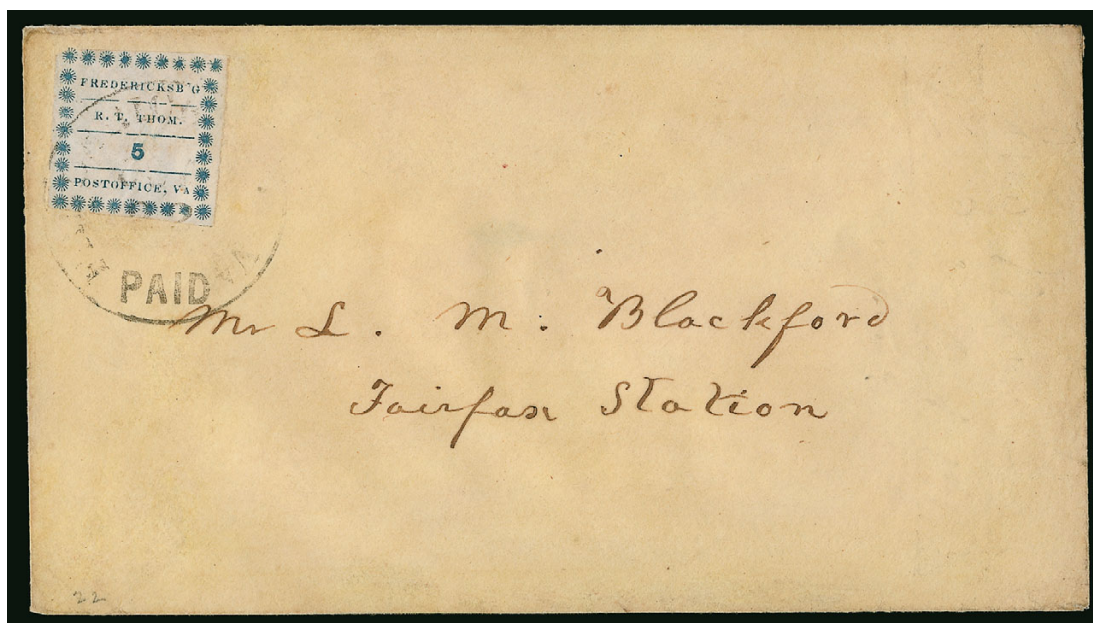 FREDERICKSB'G
R. T. THOM.
5
POSTOFFICE, VA
VA
PAID
Mr L. M. Blackford
Fairfax Station
22